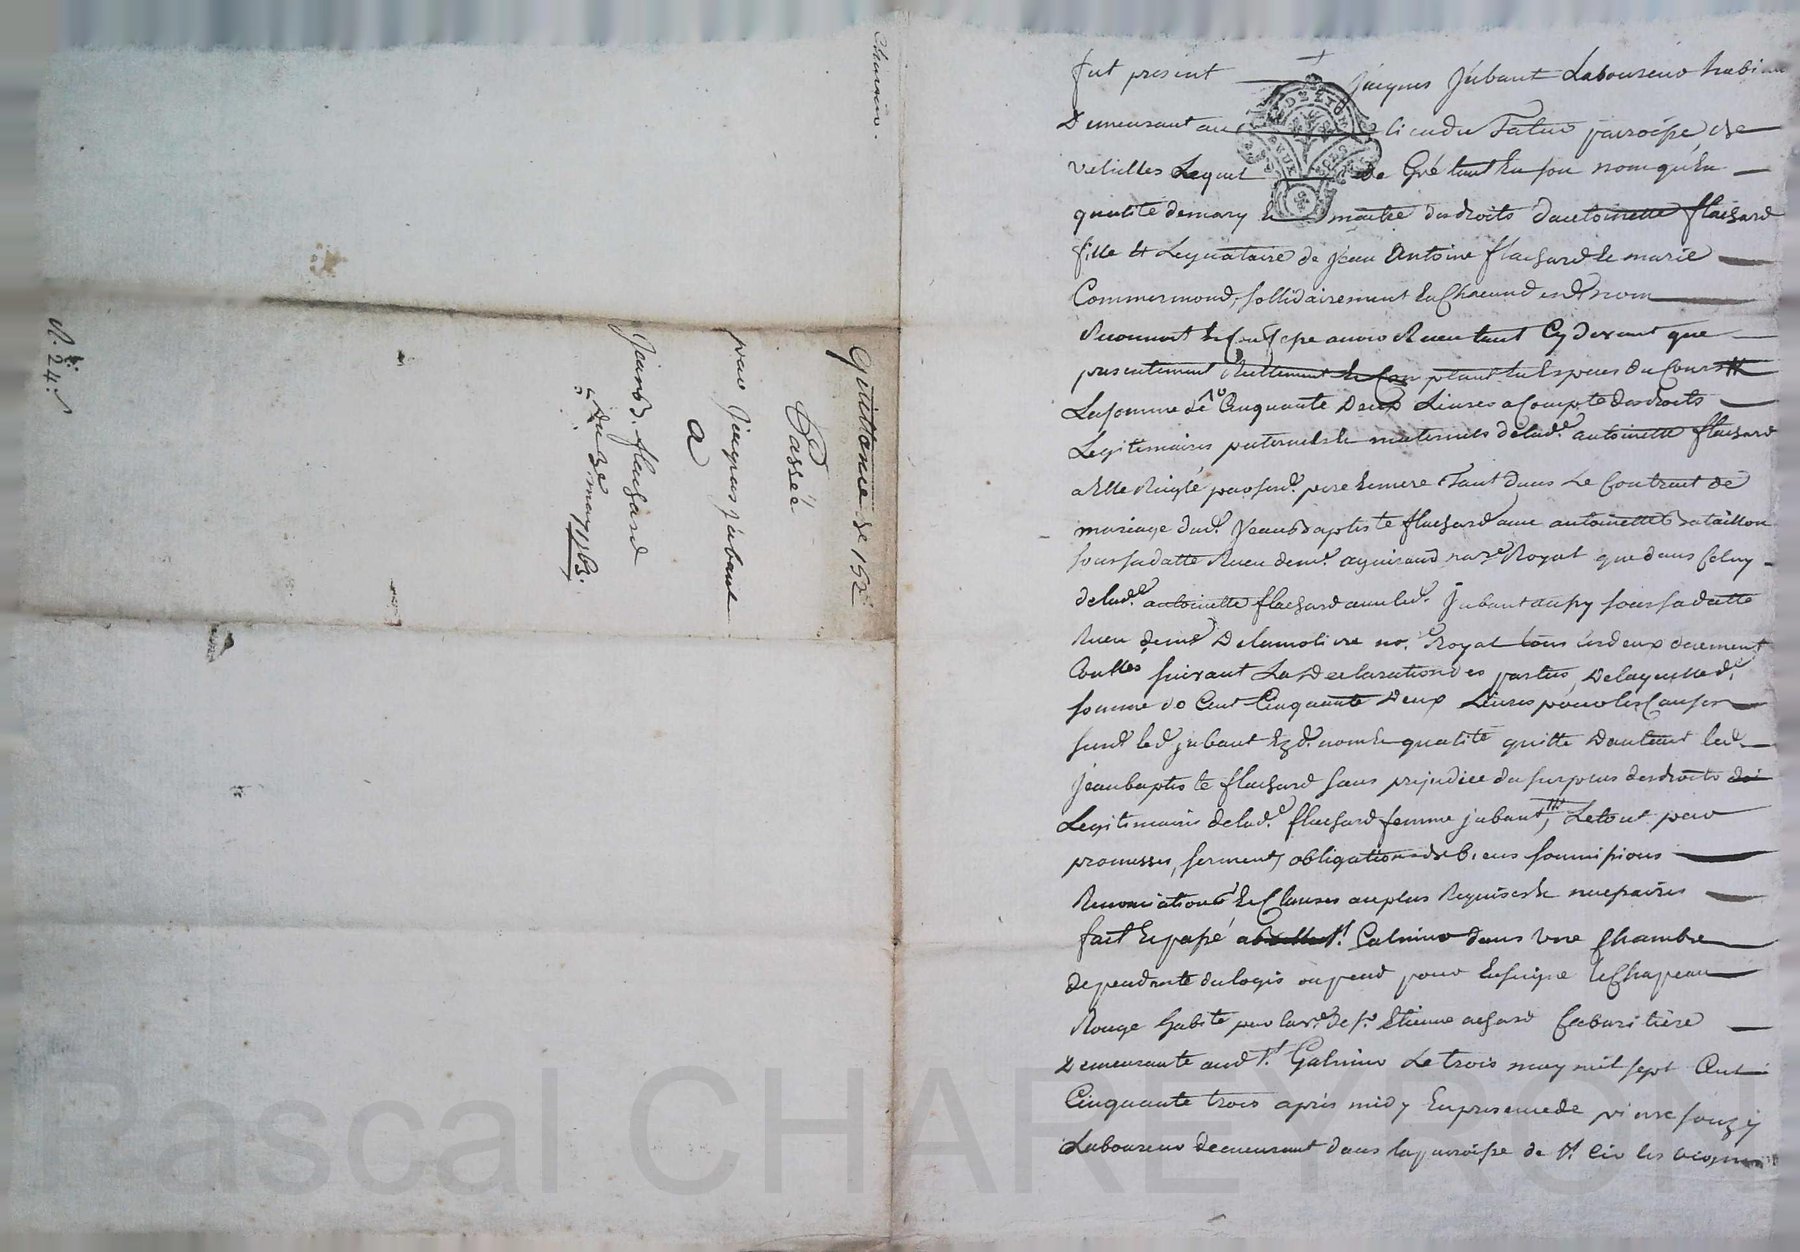 Chareiron.
N.° 24.
Quittance de 152
Passée
par Jacques jubant
a
Jean B. flachard
du 3e may 1753.
fut present Jacques Jubant Laboureur habitant
Demeurant au lieu du Falur parroisse de
velieilles Lequel De Gré tant En son nom qu'En
qualité de mary Et maitre des droits d'antoinette flachard
fille Et Legataire de jean Antoine flachard le marié
Commermond, sollidairement En Chacund esd. nom
Reconnoit Et Confesse avoir Receu tant Cy devant que
presentement Reellement En Comptant En Espece du Cours
La somme de Cinquante Deux Livres a Compte des droits
Legitimaires paternels Et maternels de lad.e antoinette flachard
a Elle Reiglé par sesd. pere Et mere Tant dans Le Contract de
mariage dud. Jean baptiste flachard avec antoinette Bataillon
sous sa datte Receu de me. aguiraud no.re Royal que dans Celuy
de lad.e antoinette flachard avec led. Jubant aussy sous sa datte
Receu de me Delamotivre no.e Royal tous les deux duement
Conttés suivant La Declaration des parties, De laquelle d.e
somme de Cent Cinquante Deux Livres pour les Causes
susd. led. jubant Ezd. nom Et qualité quitte D'autant led.
jean baptiste flachard sans prejudice du surplus des droits
Legitimaires de lad.e flachard femme jubant, Le tout par
promesses, serment, obligations de biens soumissions
Renonciations Et Clauses au plus Requises Et necessaires
fait Et passé St. Galmier dans Une Chambre
dependante du logis ou pend pour Enseigne le Chapeau
Rouge habité par la ve. de sr. Etienne achard Cabaritiere
Demeurante aud St. Galmier Le trois may mil sept Cent
Cinquante trois après midy En presence de pierre souzy
Laboureur demeurant dans la parroisse de St Cir les vignes
Pascal CHAREYRON